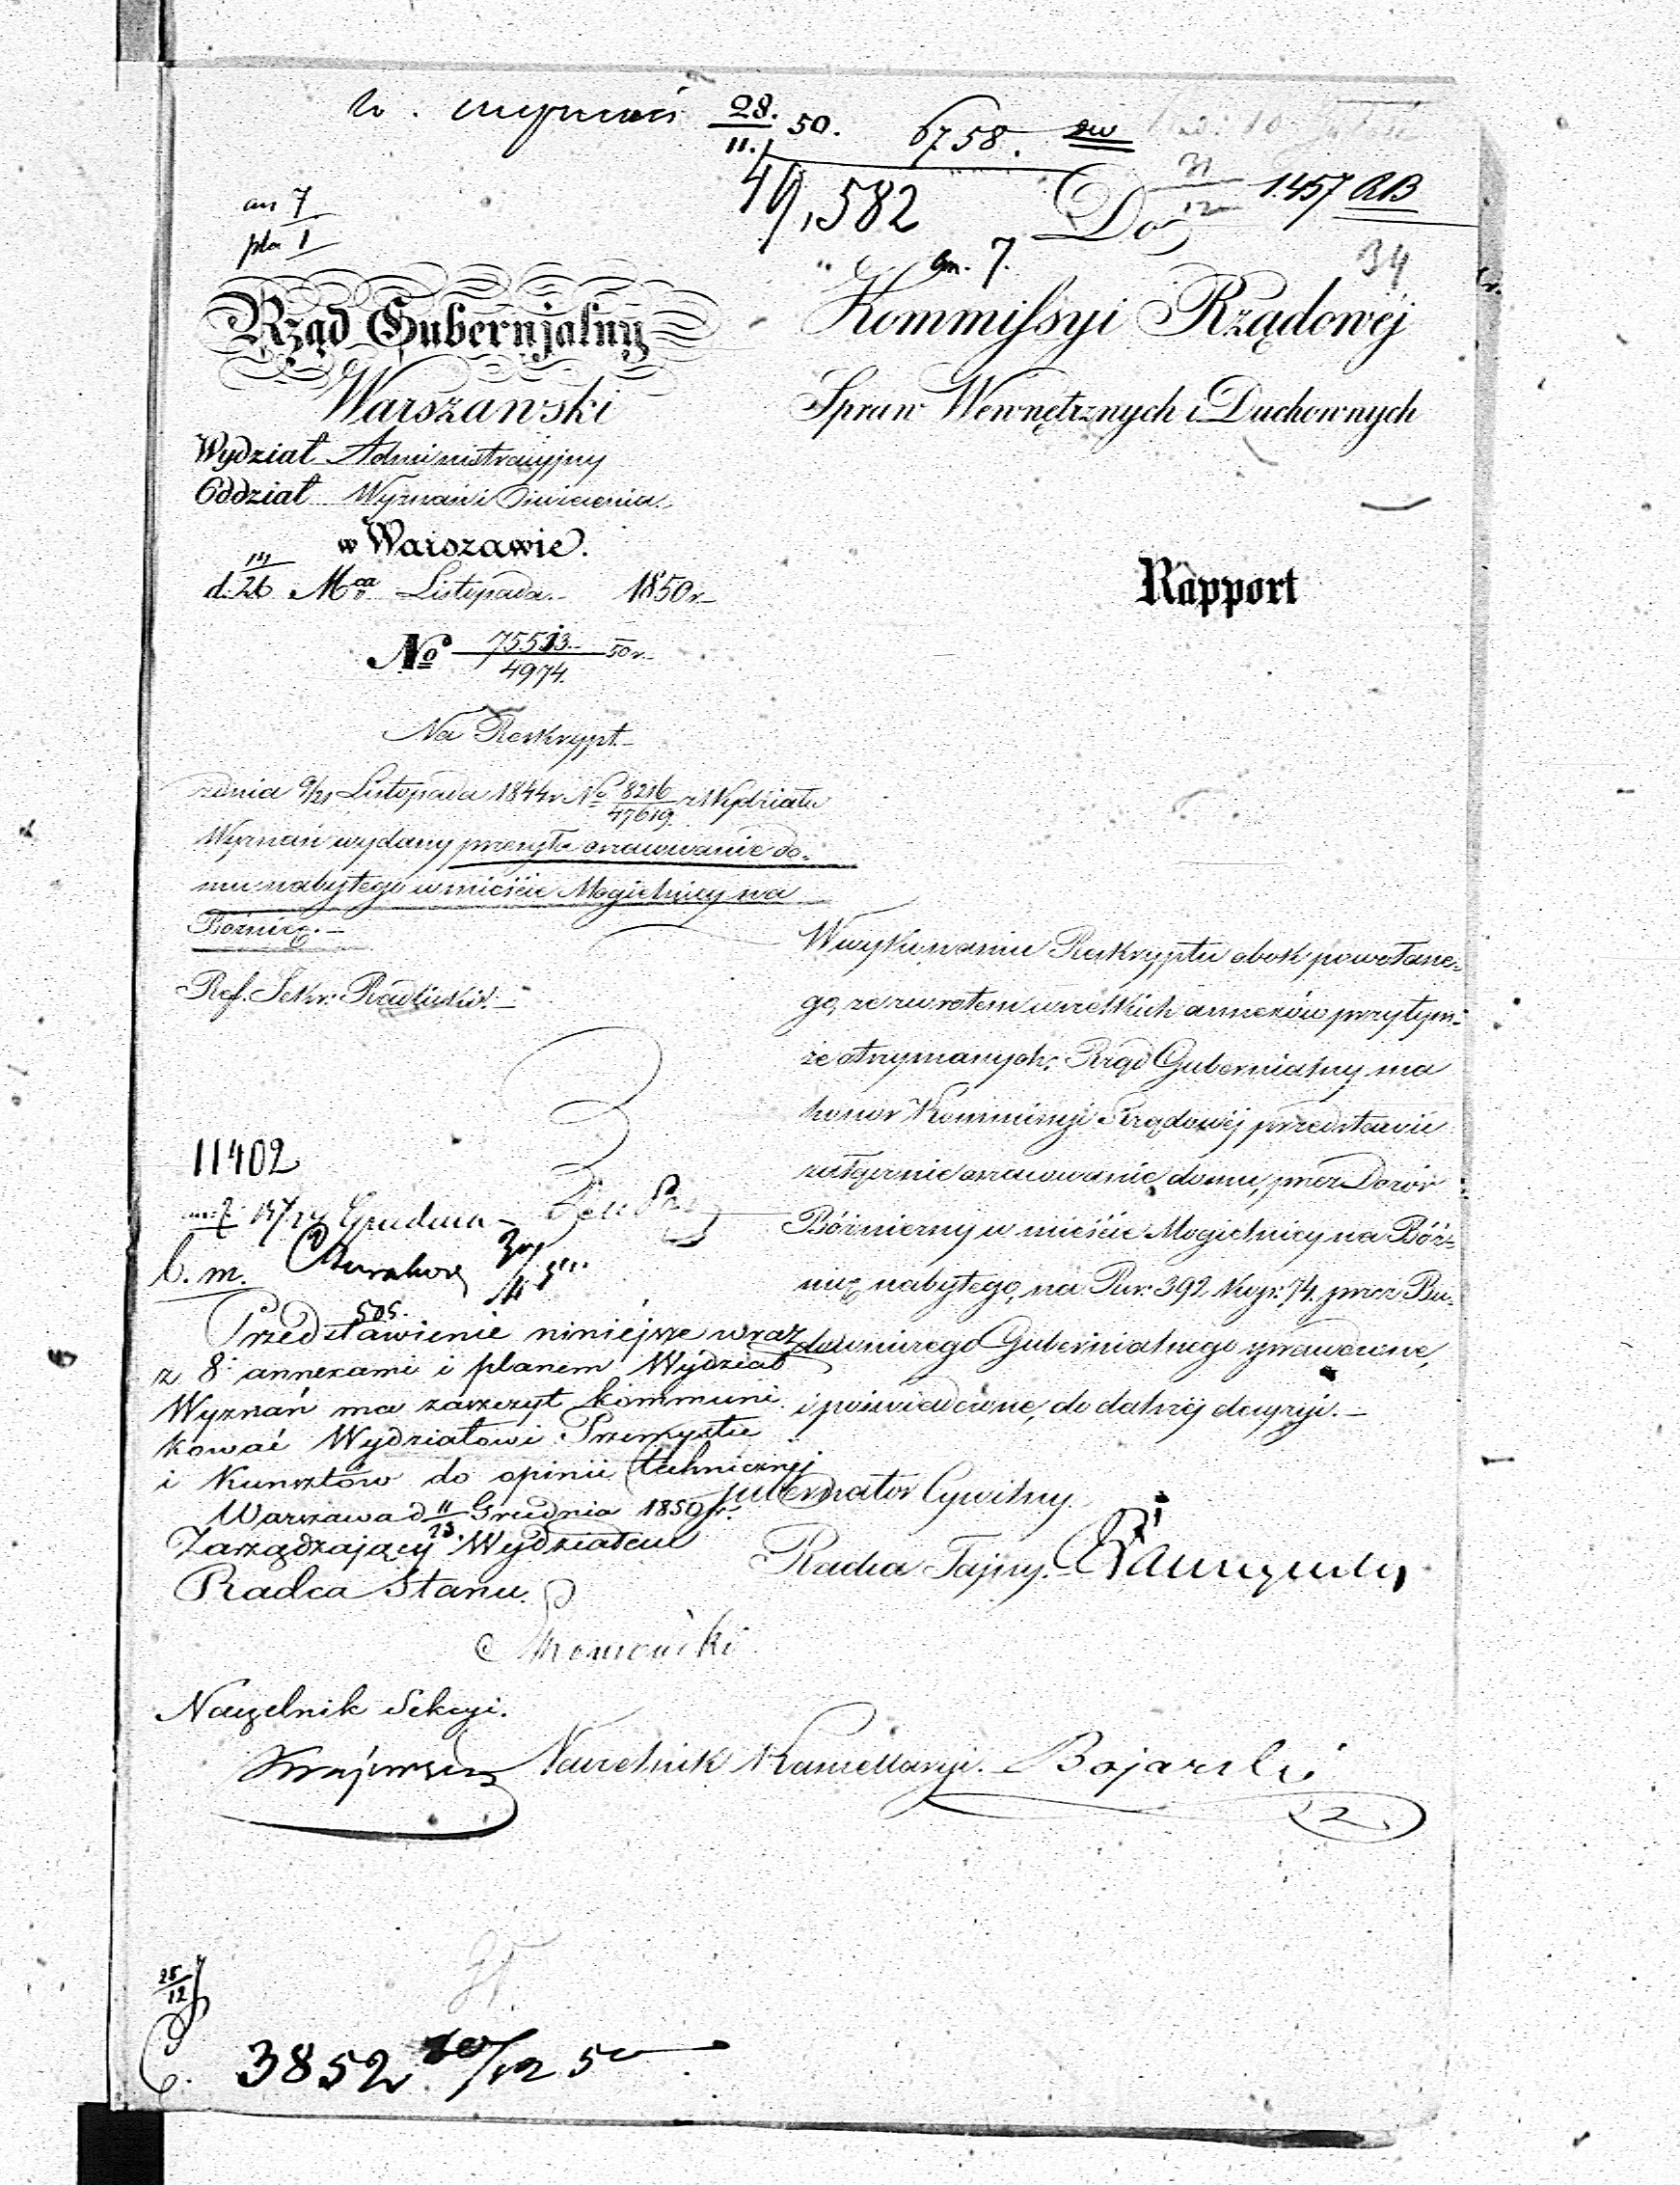 28.
11. 50.
6758.
49,582
31
12
1457 RB
34
an 7
pla 1
Do
an. 7.
Rząd Gubernjalny
Warszawski
Wydział Administracyjny
Oddział Wyznań i Oświecenia
w Warszawie.
d. 14/26 Mca Listopada 1850 r
No 75513/4974. 50 r.
Kommissyi Rządowéj
Spraw Wewnętrznych i Duchownych
Rapport
Na Reskrypt
z dnia 9/21 Listopada 1844 r No 8216/47619. z Wydziału
Wyznań wydany przesyła oszacowanie do-
mu nabytego w mieście Mogielnicy na
Bóżnicę.
Ref. Sekr:
W wykonaniu Reskryptu obok powołane-
go, ze zwrotem wszelkich annexów przy tym-
że otrzymanych, Rząd Gubernialny ma
honor Kommissyi Rządowéj przedstawić
załącznie oszacowanie domu, przez Dozór
Bóżniczny w mieście Mogielnicy na Bóż-
nicę nabytego, na Rsr: 392 kop: 74. przez Bu-
downiczego Gubernialnego sprawdzone,
i poświadczone, do dalszéj decyzyi.
Gubernator Cywilny
Radca Tajny
Naczelnik Kancellaryi. Bojarski
11402
Grudnia
b. m.
505.
Przedstawienie niniéjsze wraz
z 8 annexami i planem Wydział
Wyznań ma zaszczyt kommuni-
kować Wydziałowi Przemysłu
i Kunsztów do opinii technicznéj
Warszawa d 11/23. Grudnia 1850 r.
Zarządzający Wydziałem
Radca Stanu.
Naczelnik Sekcyi.
25
12
3852